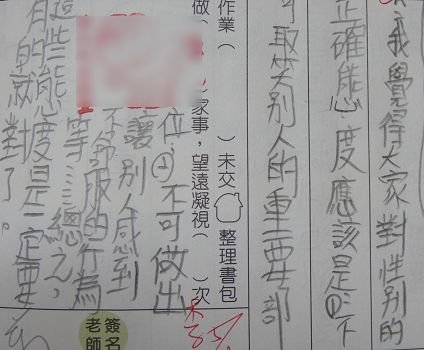 我覺得大家對性別的
正確態度應該是①:不
可取笑別人的重要部
作業( )未交 整理書包
做( 家事,望遠凝視( )次
位。④不可做出
讓別人感到
不舒服的行為
等……總之,
這些態度是一定要
有的就對了。
簽名
老師